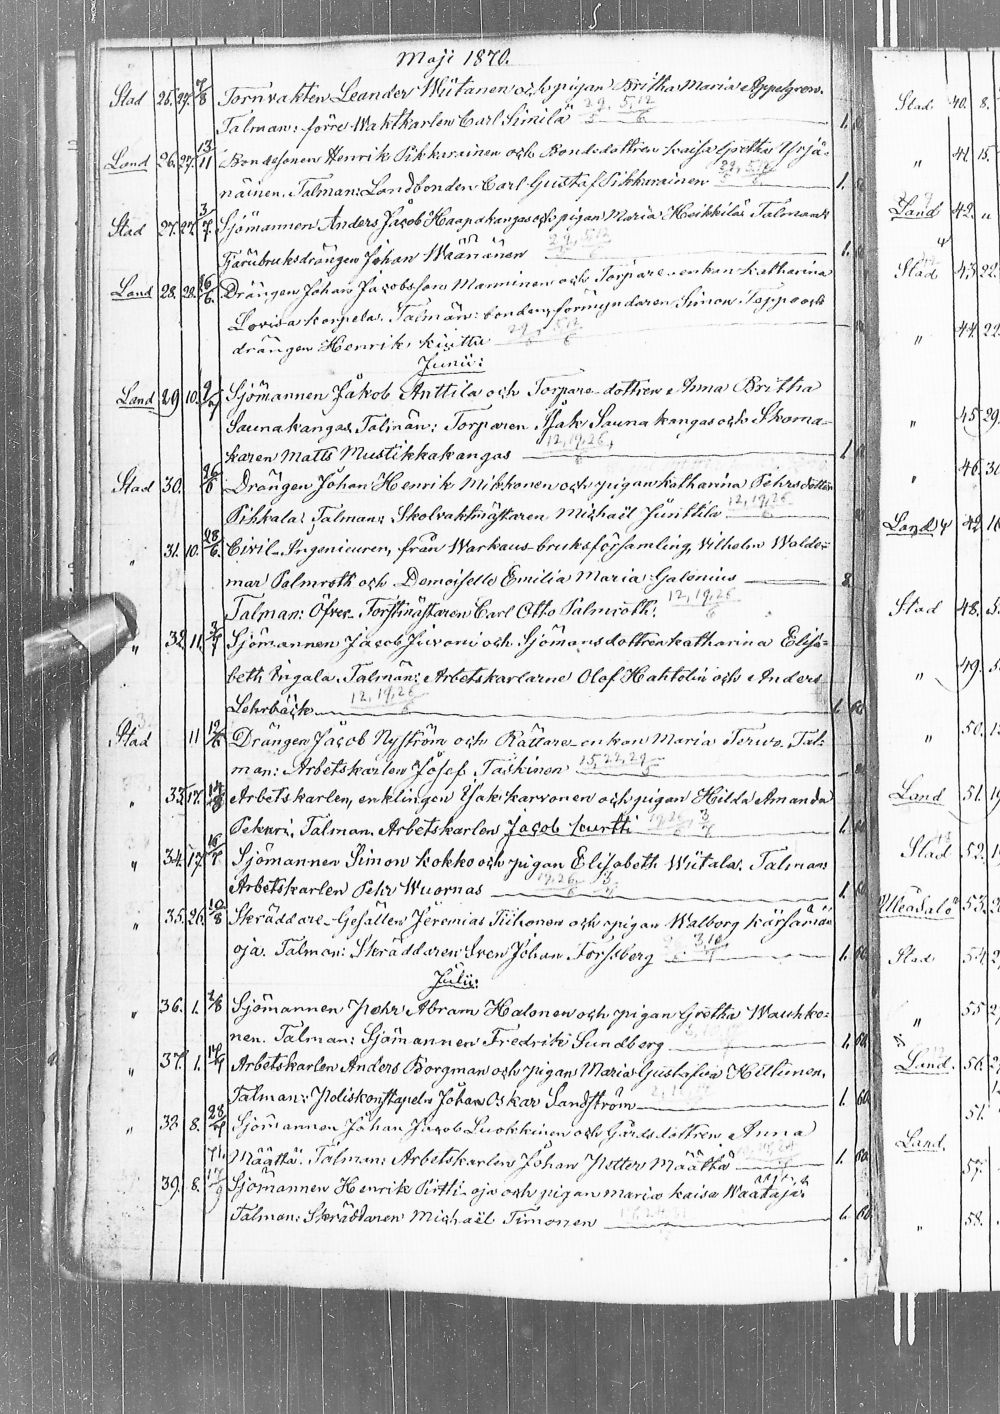 5
Maji 1870.
Stad 25. 27. 7/8 Tornvakten Leander Wiitanen och pigan Britha Maria Appelgren.
Talman: förre Vaktkarlen Carl Similä 29, 5, 12 1. 60
Land 26. 27. 13/11 Bondesonen Henrik Pikkarainen och Bondedottren Kaisa Gretha Yrjä-
näinen. Talman: Landbonden Carl Gustaf Pikkarainen 29, 5, 12 1. 60
Stad 27. 27. 3/7 Sjömannen Anders Jacob Haapakangas och pigan Maria Heikkilä Talman
Färübruksdrängen Johan Wäänänen 29, 5, 12 1. 60
Land 28. 28. 26/6 Drängen Johan Jacobsson Manninen och Torpare-enkan Katharina
Lovisa Korpela. Talmän: bonden, förmyndaren Simon Toppo och
drängen Henrik Kiutta 29, 5, 12
Junii:
Land 29 10. Sjömannen Jakob Anttila och Torpare-dottren Anna Britha
Saunakangas, Talmän: Torparen Isak Saunakangas och Skoma-
karen Matts Mustikkakangas 12, 19, 26 1.
Stad 30. 26/6 Drängen Johan Henrik Mikkonen och pigan Katharina Pehrsdotter
Pihkala. Talman: Skolvaktmästaren Michaël Junttila 12, 19, 26
" 31. 10. 28/6. Civil-Ingenieuren, från Warkaus bruksförsamling, Vilhelm Walde-
mar Palmroth och Demoiselle Emilia Maria Galenius 8.
Talman: Öfver-Forstmästaren Carl Otto Palmroth. 12, 19, 26
" 32. 11. Sjömannen Jacob Juvoni och Sjömansdottren Katharina Elisa-
beth Ingala. Talmän: Arbetskarlarne Olof Hahtolin och Anders
Lehrbäck 12, 19, 26 1. 60
Stad 11 12/6 Drängen Jacob Nyström och Rättare-enkan Maria Terwo. Tal-
man: Arbetskarlen Josef Taskinen 15, 22, 29
" 33. 17. Arbetskarlen, enklingen Isak Karvonen och pigan Hilda Amanda
Pekuri, Talman. Arbetskarlen Jacob Kurtti 19, 26, 3 1. 60
" 34. 17. 16/7 Sjömannen Simon Kokko och pigan Elisabeth Wiitala. Talman
Arbetskarlen Pehr Wuornas 19, 26, 3 1. 60
" 35. 26. 10/8 Skräddare-Gesällen Jeremias Tiihonen och pigan Walborg Kärsämän-
oja. Talman: Skräddaren Sven Johan Forssberg 3, 10 1. 60
Julii:
" 36. 1. 7/8 Sjömannen Pehr Abram Halonen och pigan Gretha Wauhko-
nen. Talman: Sjömannen Fredrik Sundberg 1. 60
" 37. 1. 17/7 Arbetskarlen Anders Borgman och pigan Maria Gustafva Hiltunen.
Talman: Poliskonstapeln Johan Oskar Sandström 1. 60
" 38. 8. 28/7 Sjömannen Johan Jacob Luokkinen och Gårdsdottren Anna
Määttä. Talman: Arbetskarlen Johan Petter Määttä 1. 60
39. 8. 17/9 Sjömannen Henrik Pirtti-oja och pigan Maria Kaisa Waataja:
Talman: Skräddaren Michaël Timonen 1. 60.
Stad. 40. 8.
" 41. 15.
Land 42. "
Stad 43. 22.
" 44. 22.
" 45. 29.
" 46. 30.
Land 42. 10
Stad 48. 5.
" 49. 5.
" 50. 13
Land 51. 19
Stad 52. 1
53. 2
Stad 54. 2
" 55. 2
Land. 56. 2
57.
Land.
57.
" 58.